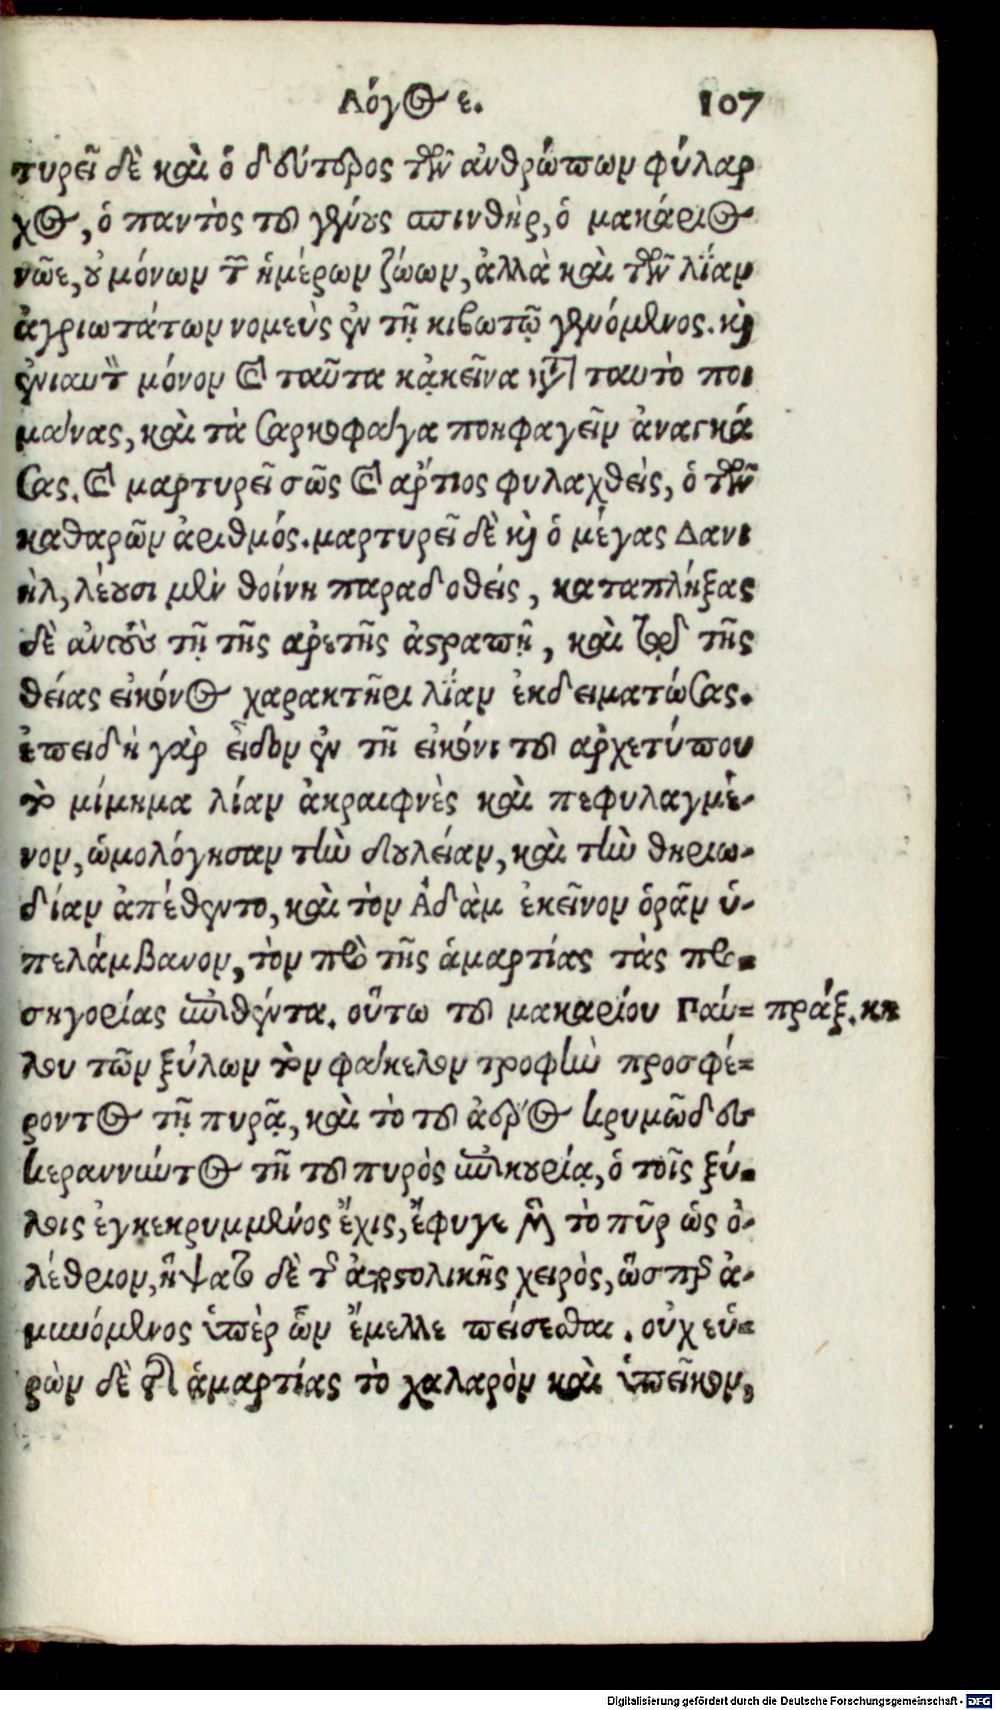 Λόγος ε. 107
τυρεῖ δὲ καὶ ὁ δεύτερος τῶν ἀνθρώπων φύλαρ
χος, ὁ παντὸς τοῦ γένους σπινθὴρ, ὁ μακάριος
νῶε, οὐ μόνων τῶν ἡμέρων ζώων, ἀλλὰ καὶ τῶν λίαν
ἀγριωτάτων νομεὺς ἐν τῇ κιβωτῷ γενόμενος. καὶ
ἐνιαυτὸν μόνον καὶ ταῦτα κἀκεῖνα κατὰ ταυτὸ ποι
μαίνας, καὶ τὰ σαρκοφάγα ποηφαγεῖν ἀναγκά
σας. καὶ μαρτυρεῖ σῶς καὶ ἄρτιος φυλαχθεὶς, ὁ τῶν
καθαρῶν ἀριθμός. μαρτυρεῖ δὲ καὶ ὁ μέγας Δανι
ὴλ, λέουσι μὲν θοίνη παραδοθείς, καταπλήξας
δὲ αὐτοὺς τῇ τῆς ἀρετῆς ἀστραπῇ, καὶ τῷ τῆς
θείας εἰκόνος χαρακτῆρι λίαν ἐκδειματώσας.
ἐπειδὴ γὰρ εἶδον ἐν τῇ εἰκόνι τοῦ ἀρχετύπου
τὸ μίμημα λίαν ἀκραιφνὲς καὶ πεφυλαγμέ-
νον, ὡμολόγησαν τὴν δουλείαν, καὶ τὴν θηριω-
δίαν ἀπέθεντο, καὶ τὸν Ἀδὰμ ἐκεῖνον ὁρᾶν ὑ-
πελάμβανον, τὸν πρὸ τῆς ἁμαρτίας τὰς προ-
σηγορίας ἐπιθέντα. οὕτω τοῦ μακαρίου Παύ= πράξ. κη
λου τῶν ξύλων τὸν φάκελον τροφὴν προσφέ=
ροντος τῇ πυρᾷ, καὶ τὸ τοῦ ἀέρος κρυμῶδες
κεραννύντος τῇ τοῦ πυρὸς ἐπικουρίᾳ, ὁ τοῖς ξύ-
λοις ἐγκεκρυμμένος ἔχις, ἔφυγε μὲν τὸ πῦρ ὡς ὀ-
λέθριον, ἥψατο δὲ τῆς ἀποστολικῆς χειρὸς, ὥσπερ ἀ-
μυνόμενος ὑπὲρ ὧν ἔμελλε πείσεσθαι. οὐχ εὑ=
ρὼν δὲ τῆς ἁμαρτίας τὸ χαλαρὸν καὶ ὑπεῖκον,
Digitalisierung gefördert durch die Deutsche Forschungsgemeinschaft - DFG